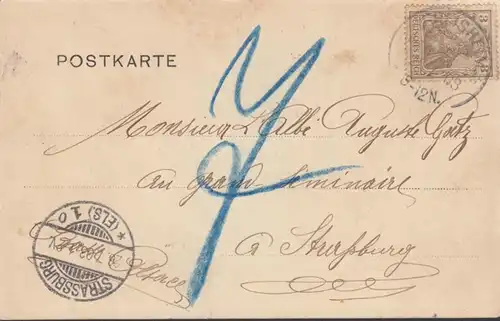 POSTKARTE
3
DEUTSCHES REICH
8-12N.
Monsieur L'Abé Auguste Gotz
au grand Séminaire
a Straßburg
Alsace
STRASSBURG
* (ELS) 1 o